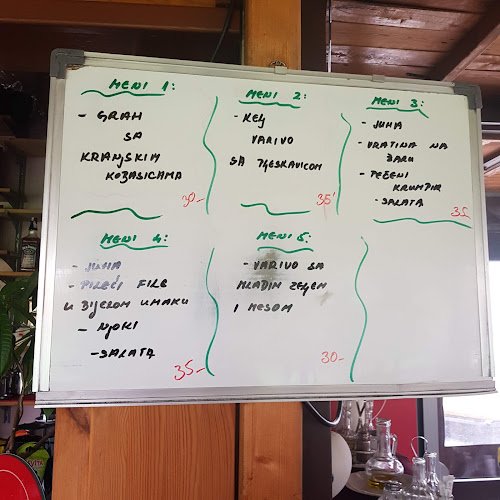 MENI 1:
- GRAH
SA
KRANJSKIM
KOBASICAMA
30-
MENI 2:
- KELJ
VARIVO
SA PLJESKAVICOM
35'
MENI 3:
- JUHA
- VRATINA NA
ŽARU
- PEČENI
KRUMPIR
- SALATA
35
MENI 4:
- JUHA
- PILEĆI FILE
U BIJELOM UMAKU
- NJOKI
- SALATA
35-
MENI 5.
- VARIVO SA
MLADIM ZELJEM
I MESOM
30-